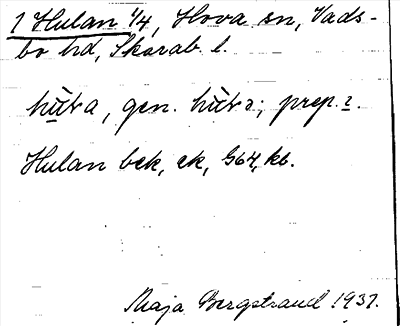 1 Hulan 1/4, Hova sn, Vads-
bo hd, Skarab. l.
hu̅ta, gen. hu̅ta; prep. i.
Hulan bek, ek, G64, kb.
Maja Bergstrand 1937.